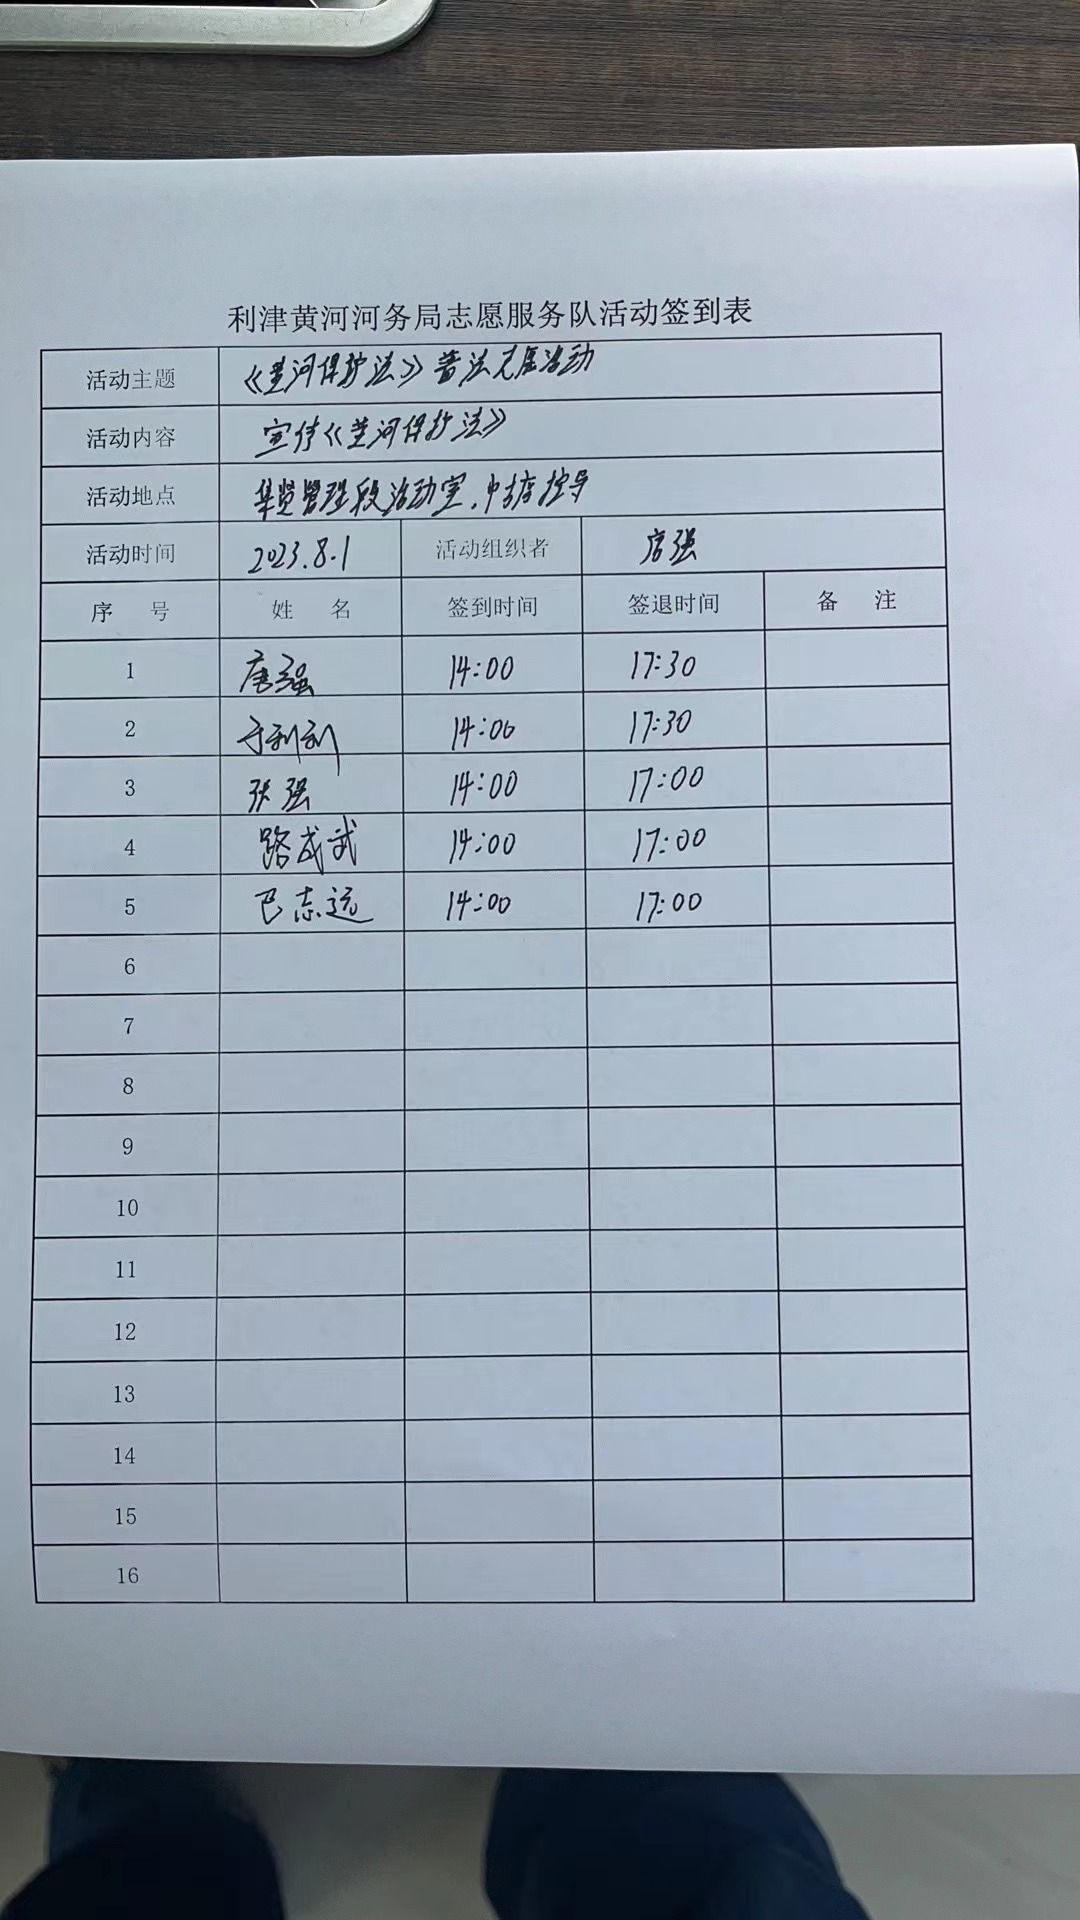 利津黄河河务局志愿服务队活动签到表
活动主题 《黄河保护法》普法志愿活动
活动内容 宣传《黄河保护法》
活动地点 集贤管理段活动室、
活动时间 2023.8.1 活动组织者 唐强
序 号 姓 名 签到时间 签退时间 备 注
1 唐强 14:00 17:30
2 于利利 14:00 17:30
3 张强 14:00 17:00
4 路成武 14:00 17:00
5 巴志远 14:00 17:00
6
7
8
9
10
11
12
13
14
15
16